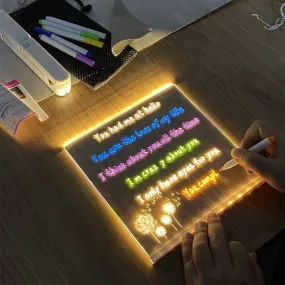 You had me at hello
You are the love of my life
I think about you all the time
I m crazy about you
I only have eyes for you
You comp